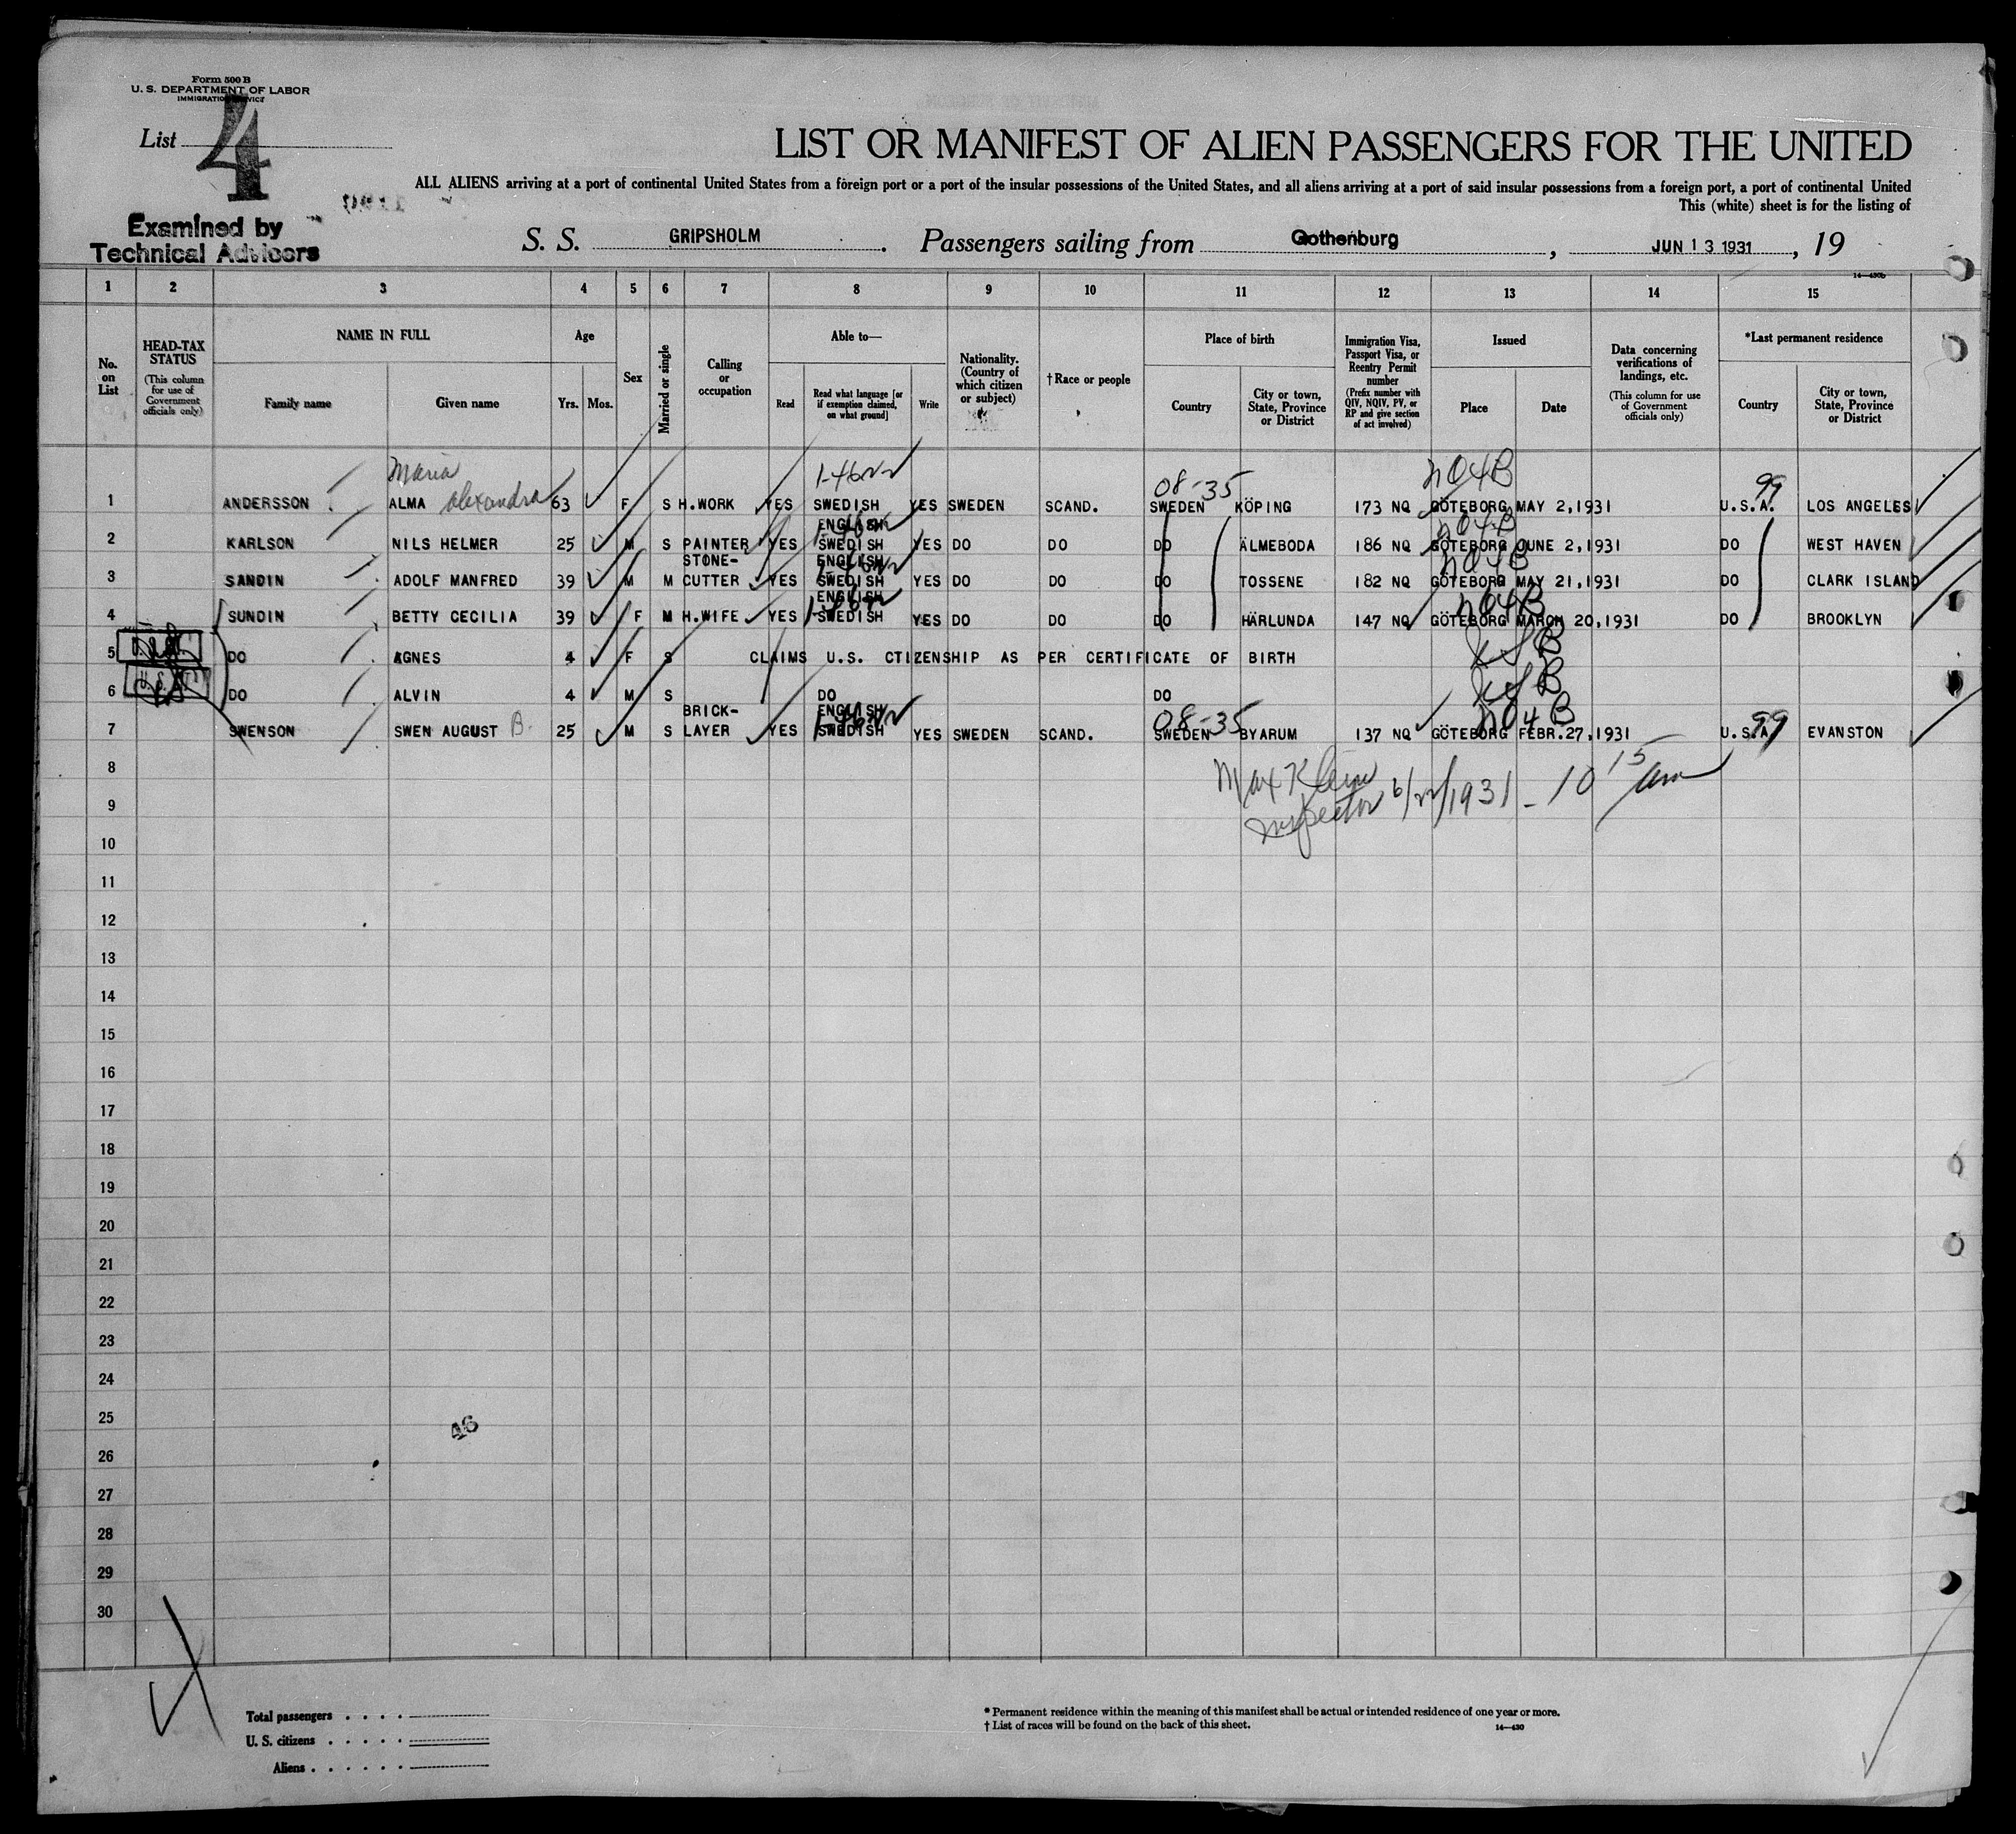 Form 500 B
U. S. DEPARTMENT OF LABOR
IMMIGRATION SERVICE
List 4
LIST OR MANIFEST OF ALIEN PASSENGERS FOR THE UNITED
ALL ALIENS arriving at a port of continental United States from a foreign port or a port of the insular possessions of the United States, and all aliens arriving at a port of said insular possessions from a foreign port, a port of continental United
This (white) sheet is for the listing of
Examined by
Technical Advisors
S. S. GRIPSHOLM . Passengers sailing from Gothenburg , JUN 13 1931 , 19
14—430b
1 2 3 4 5 6 7 8 9 10 11 12 13 14 15
No. on List
HEAD-TAX STATUS (This column for use of Government officials only)
NAME IN FULL
Family name Given name
Age
Yrs. Mos.
Sex
Married or single
Calling or occupation
Able to—
Read Read what language [or if exemption claimed, on what ground] Write
Nationality. (Country of which citizen or subject)
†Race or people
Place of birth
Country City or town, State, Province or District
Immigration Visa, Passport Visa, or Reentry Permit number (Prefix number with QIV, NQIV, PV, or RP and give section of act involved)
Issued
Place Date
Data concerning verifications of landings, etc. (This column for use of Government officials only)
*Last permanent residence
Country City or town, State, Province or District
Maria 08-35 99
1 ANDERSSON ALMA Alexandra 63 F S H.WORK YES SWEDISH YES SWEDEN SCAND. SWEDEN KÖPING 173 NQ GÖTEBORG MAY 2,1931 U.S.A. LOS ANGELES
ENGLISH
2 KARLSON NILS HELMER 25 M S PAINTER YES SWEDISH YES DO DO DO ÄLMEBODA 186 NQ GÖTEBORG JUNE 2,1931 DO WEST HAVEN
STONE- ENGLISH
3 SANDIN ADOLF MANFRED 39 M M CUTTER YES SWEDISH YES DO DO DO TOSSENE 182 NQ GÖTEBORG MAY 21,1931 DO CLARK ISLAND
ENGLISH
4 SUNDIN BETTY CECILIA 39 F M H.WIFE YES SWEDISH YES DO DO DO HÄRLUNDA 147 NQ GÖTEBORG MARCH 20,1931 DO BROOKLYN
5 DO AGNES 4 F S CLAIMS U.S. CTIZENSHIP AS PER CERTIFICATE OF BIRTH
6 DO ALVIN 4 M S DO DO
BRICK- ENGLISH 08-35 99
7 SWENSON SWEN AUGUST B. 25 M S LAYER YES SWEDISH YES SWEDEN SCAND. SWEDEN BYARUM 137 NQ GÖTEBORG FEBR.27,1931 U.S.A. EVANSTON
8
Max Klein
Inspector 6/22/1931 - 10 15 am
9
10
11
12
13
14
15
16
17
18
19
20
21
22
23
24
25
46
26
27
28
29
30
Total passengers . . . .
U. S. citizens . . . . .
Aliens . . . . . .
* Permanent residence within the meaning of this manifest shall be actual or intended residence of one year or more.
† List of races will be found on the back of this sheet.
14—430